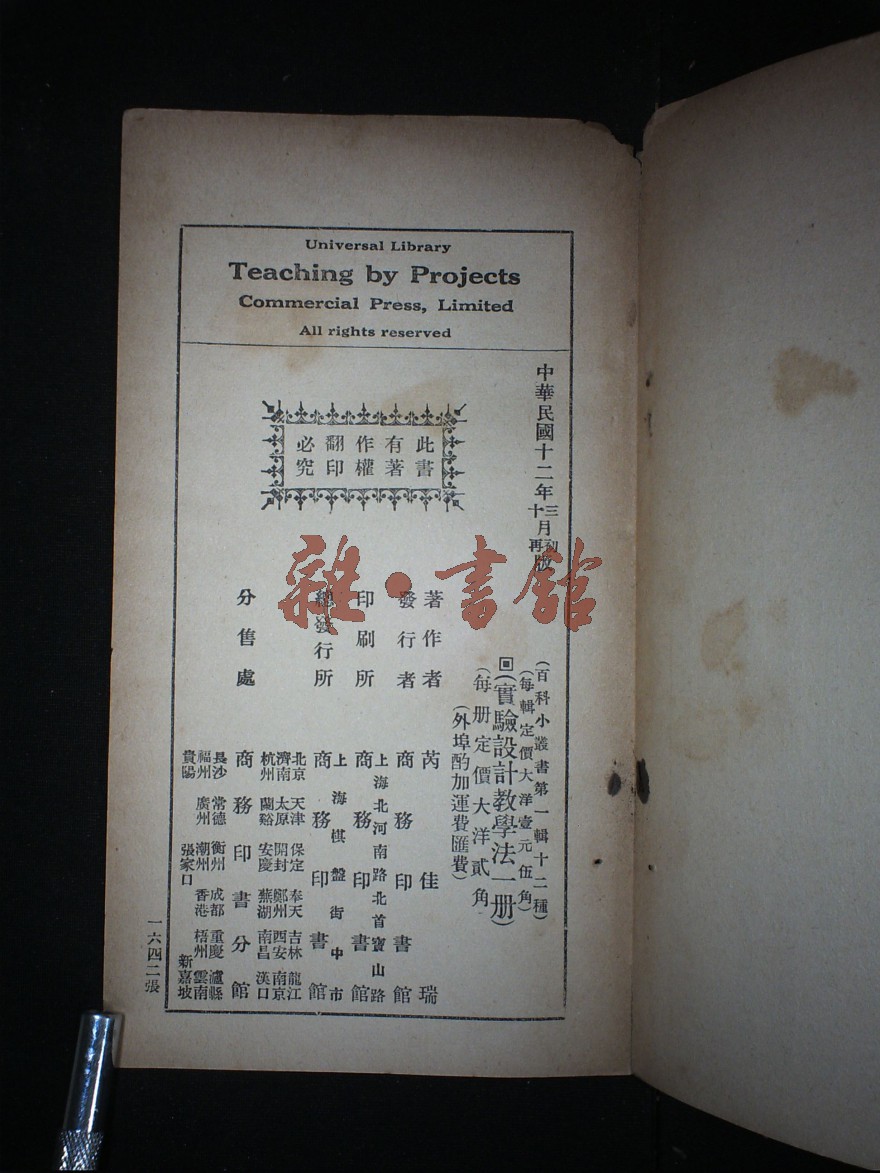 Universal Library
Teaching by Projects
Commercial Press, Limited
All rights reserved
中華民國十二年三月初版
十月再版
此書
有著
作權
翻印
必究
(百科小叢書第一輯十二種)
(每輯定價大洋壹元伍角)
回(實驗設計教學法一册)
(每册定價大洋貳角)
(外埠酌加運費匯費)
著作者 芮佳瑞
發行者 商務印書館
上海北河南路北首寶山路
印刷所 商務印書館
上海棋盤街中市
總發行所 商務印書館
北京 天津 保定 奉天 吉林 龍江
濟南 太原 開封 鄭州 西安 南京
杭州 蘭谿 安慶 蕪湖 南昌 漢口
分售處 商務印書分館
長沙 常德 衡州 成都 重慶 瀘縣
福州 廣州 潮州 香港 梧州 雲南
貴陽 張家口 新嘉坡
一六四二張
雜·書館